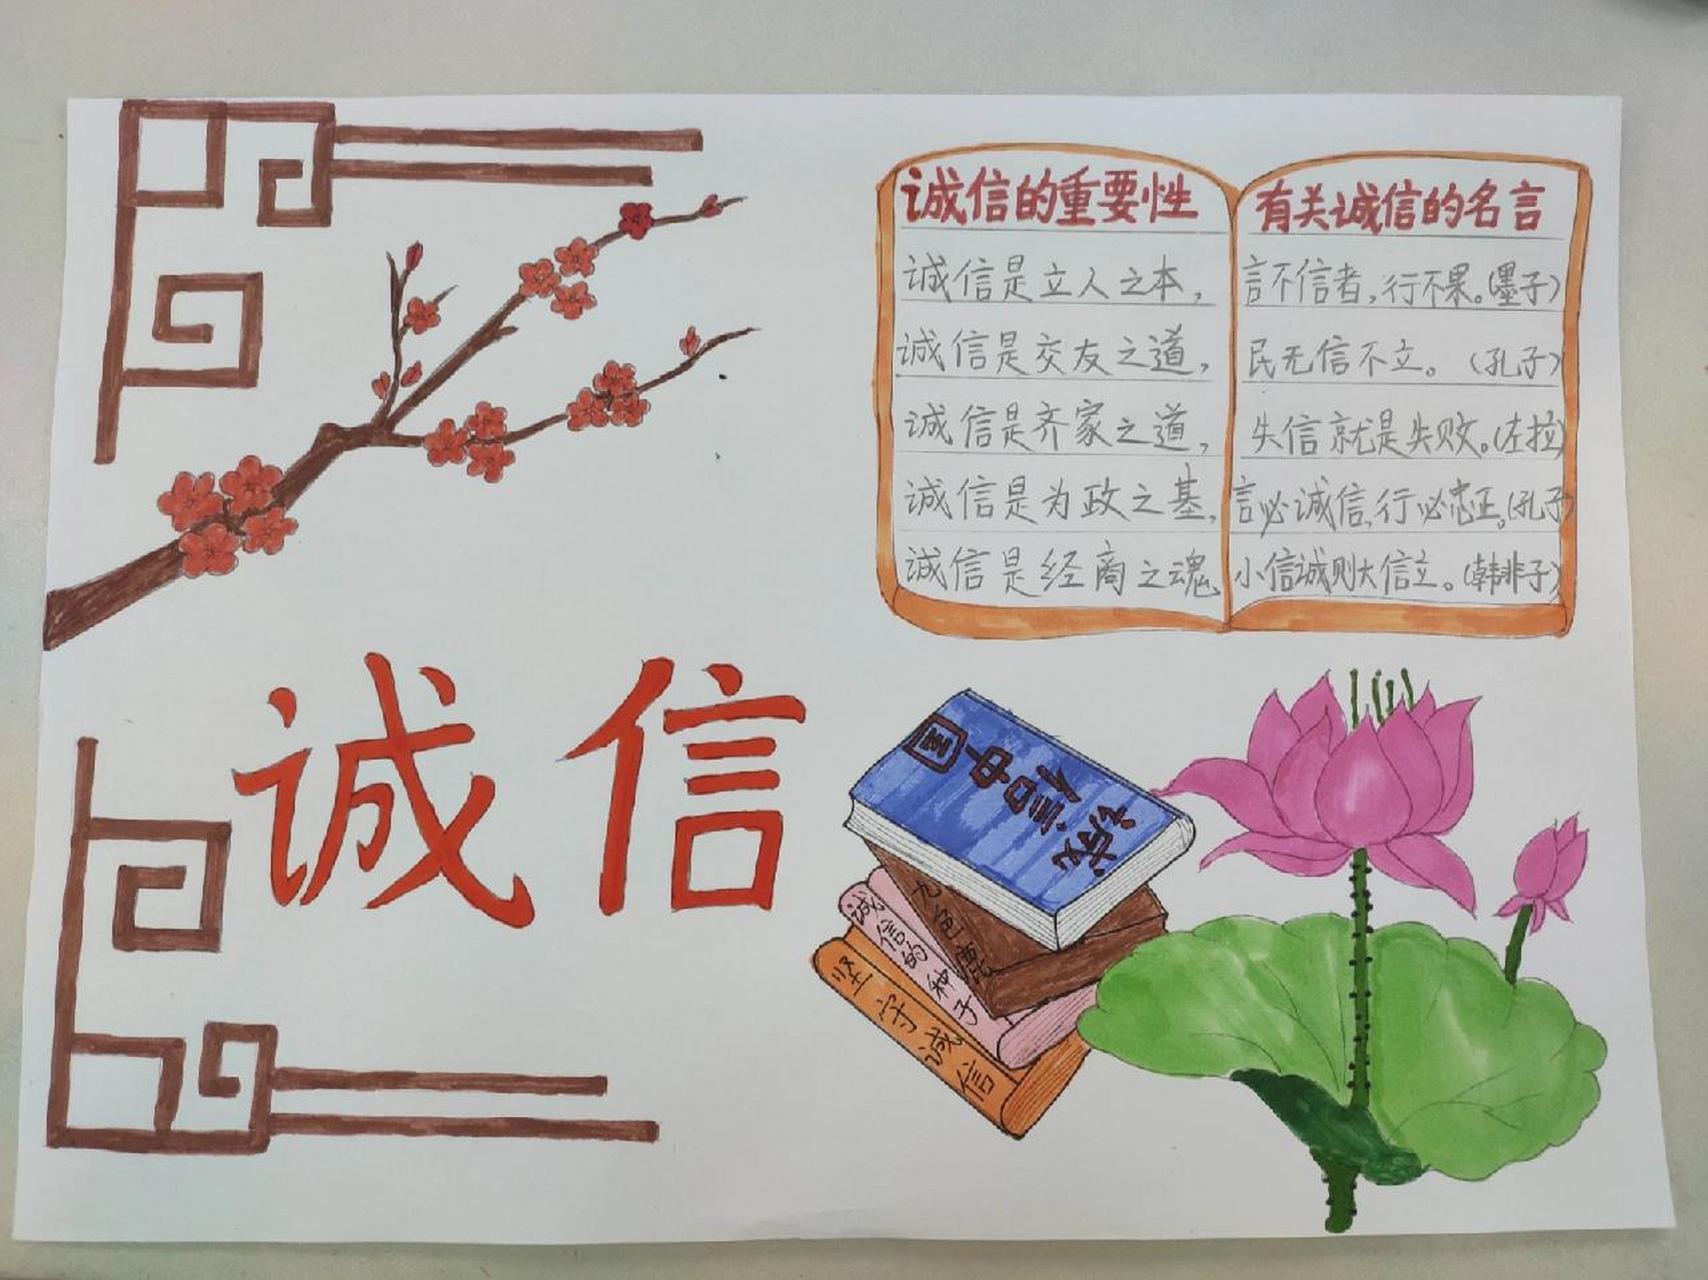 诚信的重要性
诚信是立人之本，
诚信是交友之道，
诚信是齐家之道，
诚信是为政之基，
诚信是经商之魂
有关诚信的名言
言不信者，行不果。（墨子）
民无信不立。（孔子）
失信就是失败。（左拉）
言必诚信，行必忠正。（孔子）
小信诚则大信立。（韩非子）
诚信
诚信中国
九色鹿
诚信的种子
坚守诚信